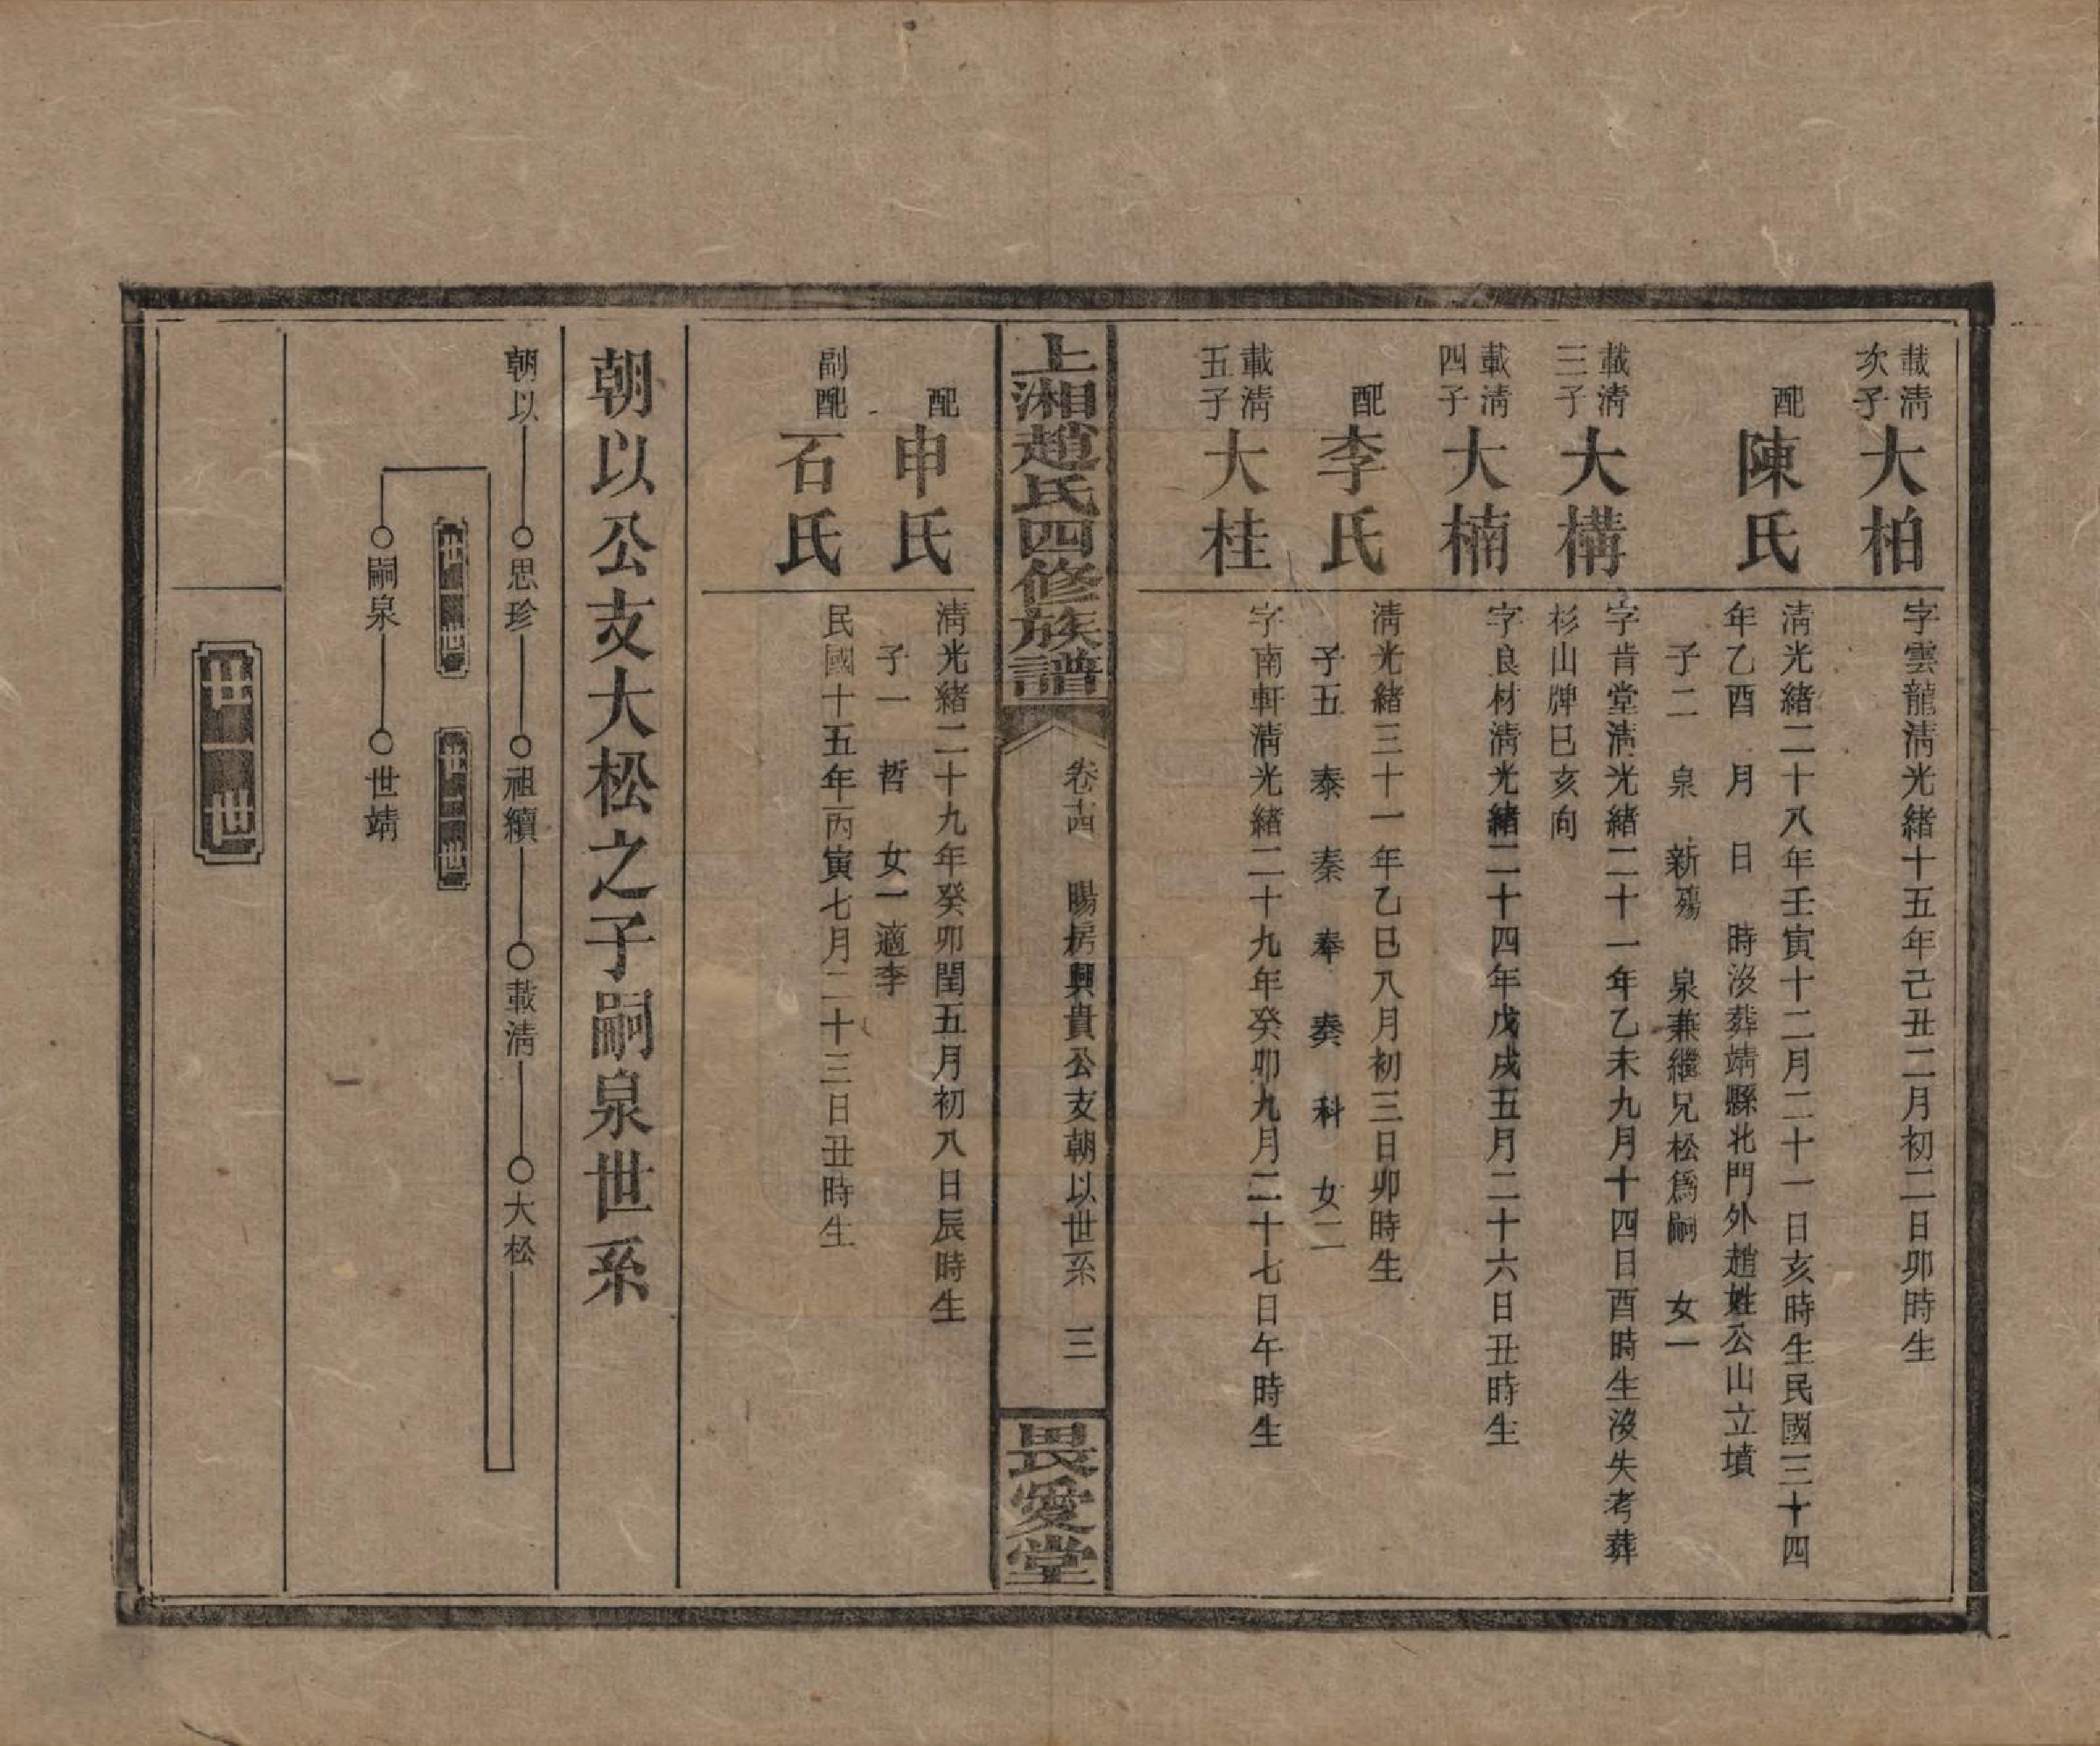 載清
次子
大柏
字雲龍清光緒十五年己丑二月初二日卯時生
配
陳氏
清光緒二十八年壬寅十二月二十一日亥時生民國三十四
年乙酉 月 日 時沒葬靖縣北門外趙姓公山立墳
子二 泉 新殤 泉兼繼兄松爲嗣 女一
載清
三子
大構
字肯堂清光緒二十一年乙未九月十四日酉時生沒失考葬
杉山牌巳亥向
載清
四子
大楠
字良材清光緒二十四年戊戌五月二十六日丑時生
配
李氏
清光緒三十一年乙巳八月初三日卯時生
子五 泰 秦 奉 奏 科 女二
載清
五子
大桂
字南軒清光緒二十九年癸卯九月二十七日午時生
上湘趙氏四修族譜
卷十四 暘房興貴公支朝以世系 三
畏愛堂
配
申氏
清光緒二十九年癸卯閏五月初八日辰時生
子一 哲 女一適李
副配
石氏
民國十五年丙寅七月二十三日丑時生
朝以公支大松之子嗣泉世系
朝以
思珍
祖續
載清
大松
世一世
世二世
嗣泉
世靖
世一世